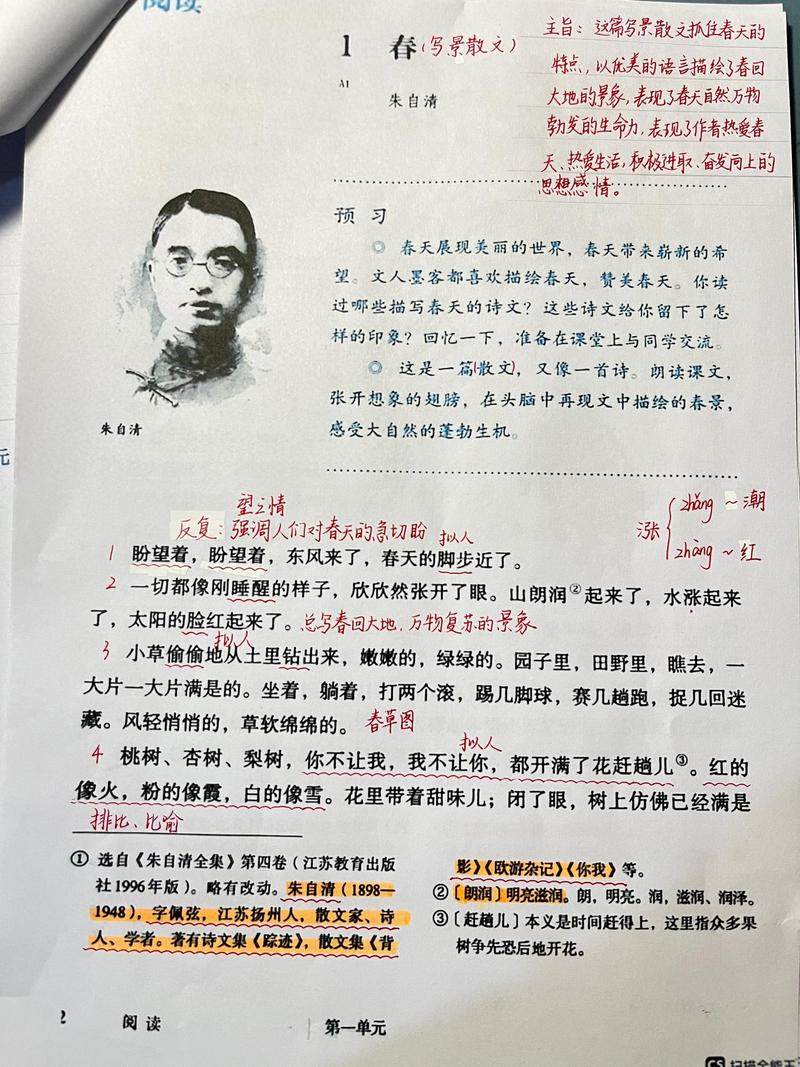 阅读
1 春(写景散文)
A1
朱自清
主旨：这篇写景散文抓住春天的
特点，以优美的语言描绘了春回
大地的景象，表现了春天自然万物
勃发的生命力，表现了作者热爱春
天、热爱生活，积极进取、奋发向上的
思想感情。
预习
◎ 春天展现美丽的世界，春天带来崭新的希
望。文人墨客都喜欢描绘春天，赞美春天。你读
过哪些描写春天的诗文？这些诗文给你留下了怎
样的印象？回忆一下，准备在课堂上与同学交流。
◎ 这是一篇(散文)，又像一首诗。朗读课文，
张开想象的翅膀，在头脑中再现文中描绘的春景，
感受大自然的蓬勃生机。
朱自清
元
望之情
反复：强调人们对春天的急切盼
拟人
涨 { zhǎng ~潮
zhàng ~红
1 盼望着，盼望着，东风来了，春天的脚步近了。
2 一切都像刚睡醒的样子，欣欣然张开了眼。山朗润②起来了，水涨起来
了，太阳的脸红起来了。总写春回大地，万物复苏的景象
拟人
3 小草偷偷地从土里钻出来，嫩嫩的，绿绿的。园子里，田野里，瞧去，一
大片一大片满是的。坐着，躺着，打两个滚，踢几脚球，赛几趟跑，捉几回迷
藏。风轻悄悄的，草软绵绵的。春草图
拟人
4 桃树、杏树、梨树，你不让我，我不让你，都开满了花赶趟儿③。红的
像火，粉的像霞，白的像雪。花里带着甜味儿；闭了眼，树上仿佛已经满是
排比、比喻
① 选自《朱自清全集》第四卷（江苏教育出版
社1996年版）。略有改动。朱自清（1898—
1948），字佩弦，江苏扬州人，散文家、诗
人、学者。著有诗文集《踪迹》，散文集《背
影》《欧游杂记》《你我》等。
②〔朗润〕明亮滋润。朗，明亮。润，滋润、润泽。
③〔赶趟儿〕本义是时间赶得上，这里指众多果
树争先恐后地开花。
2 阅读 第一单元
CS 扫描全能王